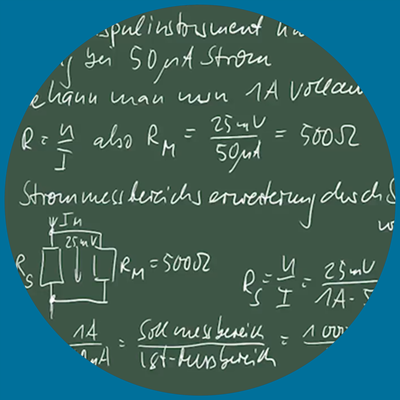 spulinstrument
bei 50µA Strom
kann man nun 1A Vollau
R = U/I also R_M = 25mV/50µA = 500Ω
Strommessbereichserweiterung durch S
In
25mV
R_S R_M = 500Ω R_S = U/I = 25mV/1A-5
1A/µA = Sollmessbereich/ist-Messbereich = 1 000